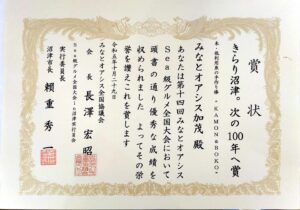 賞状
きらり沼津。次の100年へ賞
みなとオアシス加茂 殿
あなたは第十四回みなとオアシス
Sea級グルメ全国大会において
頭書の通り優秀な成績を
収められました よってその栄
誉を讃えこれを賞します
令和五年十月二十九日
みなとオアシス全国協議会
会長 長澤 宏昭
Sea級グルメ全国大会in沼津実行委員会
実行委員長
沼津市長 賴重 秀一